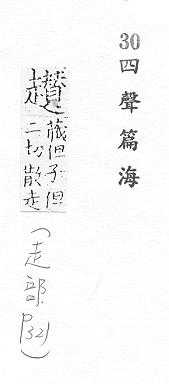 30四聲篇海
藏但子但
二切散走
(走部P321)